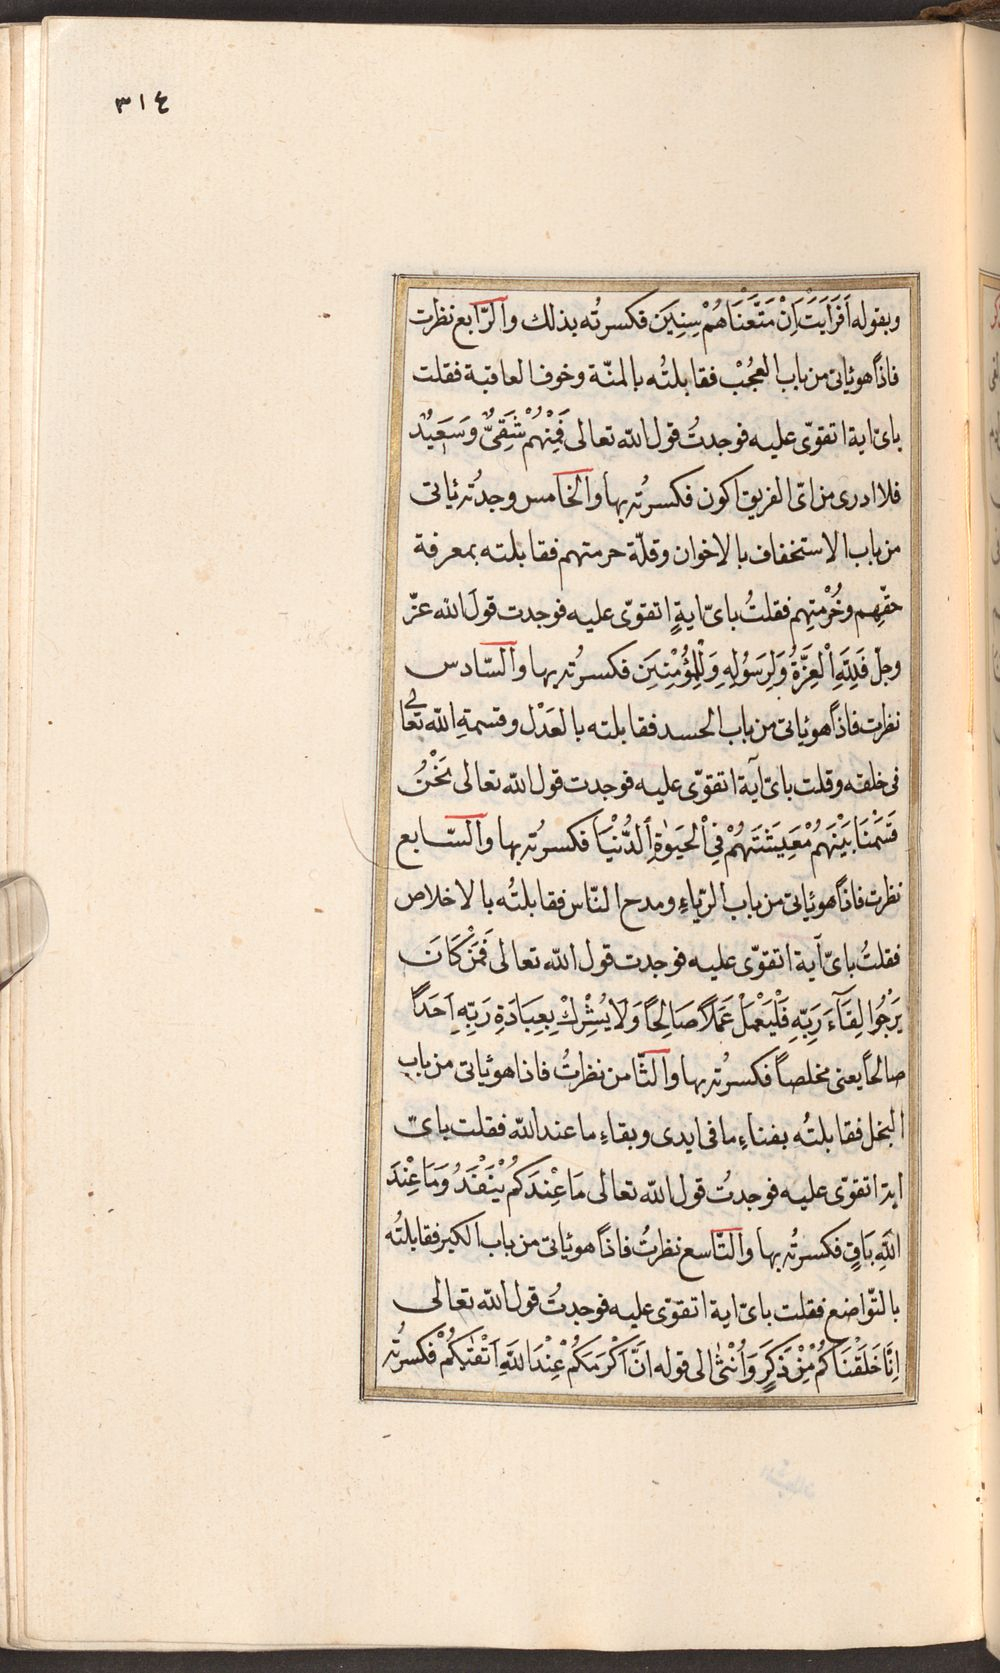 ٣١٤
وبقوله اَفَرَاَيْتَ اِنْ مَتَّعْنَاهُمْ سِنِينَ فكسرتُه بذلك والرّابع نظرت
فاذاً هو ياتى من باب العجُبْ فقابلتُه بالمنّة وخوف العاقبة فقلت
باىّ اية اتقوّى عليه فوجدتُ قول الله تعالى فَمِنْهُمْ شَقِىٌّ وَسَعِيْدٌ
فلا ادرى من اىّ الفريق اكون فكسرتُه بها والخامس وجدتُه ياتى
من باب الاستخفاف بالاخوان وقلّة حرمتهم فقابلته بمعرفة
حقّهم وحُرْمتِهم فقلتُ باىّ ايةٍ اتقوّى عليه فوجدت قولَ الله عزّ
وجلّ فَلِلّهِ الْعِزَّةُ وَلِرَسُولِهِ وَلِلْمُؤْمِنِينَ فكسرتُه بها والسّادس
نظرت فاذاً هو ياتى من باب الحسد فقابلته بالعَدْل وقسمةِ الله تعالى
فى خلقه وقلت باىّ آية اتقوّى عليه فوجدت قول الله تعالى نَحْنُ
قَسَمْنَا بَيْنَهُمْ مَعِيشَتَهُمْ فِى الْحَيَوٰةِ الدُّنْيَا فكسرتُه بها والسّابع
نظرت فاذاً هو ياتى من باب الرّياءِ ومدح النّاس فقابلتُه بالاخلاص
فقلتُ باىّ آية اتقوّى عليه فوجدت قول الله تعالى فَمَنْ كَانَ
يَرْجُوا لِقَآءَ رَبِّهِ فَلْيَعْمَلْ عَمَلاً صَالِحًا وَلَا يُشْرِكْ بِعِبَادَةِ رَبِّهِ اَحَدًا
صالحاً يعنى مخلصاً فكسرتُه بها والثّامن نظرتُ فاذا هو ياتى من باب
البخل فقابلتُه بفناءِ ما فى ايدى وبقاءِ ما عند الله فقلت باىّ
اية اتقوّى عليه فوجدتُ قول الله تعالى مَا عِنْدَكُمْ يَنْفَدُ وَمَا عِنْدَ
اللهِ بَاقٍ فكسرتُه بها والتّاسع نظرتُ فاذاً هو ياتى من باب الكبر فقابلتُه
بالتّواضع فقلت باىّ اية اتقوّى عليه فوجدتُ قول الله تعالى
اِنَّا خَلَقْنَاكُمْ مِنْ ذَكَرٍ وَاُنْثٰى الى قوله انَّ اَكْرَمَكُمْ عِنْدَ اللهِ اَتْقٰيكُمْ فكسرتُه